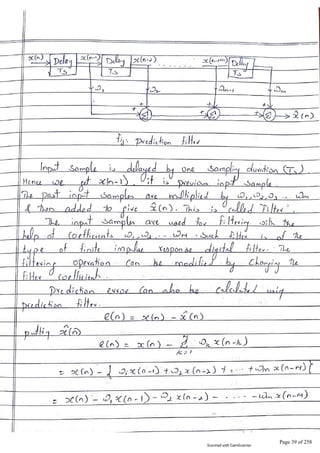 x(n) Delay Ts x(n-1) Delay Ts x(n-2) x(n-m+1) Delay Ts
ω1 ω2 ωm-1 ωm
+ + + + + +
Σ Σ Σ → x̂(n)
fig: Prediction filter
Input Sample is delayed by one sampling duration (Ts)
Hence we get x(n-1), it is previous input sample
The past input samples are multiplied by ω1, ω2, ω3 .. ωm
& then added to give x̂(n). This is called Filter.
The input samples are used for filtering with the
help of coefficients ω1, ω2 .. ωM. Such filter is of the
type of finite impulse response digital filter. The
filtering operation can be modified by Changing the
filter Coefficients.
Prediction error can also be calculated using
prediction filter.
e(n) = x(n) - x̂(n)
putting x̂(n)
e(n) = x(n) - Σ ωk x(n-k)
k=1
= x(n) - { ω1 x(n-1) + ω2 x(n-2) + ... + ωm x(n-M) }
= x(n) - ω1 x(n-1) - ω2 x(n-2) - ..... - ωm x(n-M)
Scanned with CamScanner
Page 39 of 258